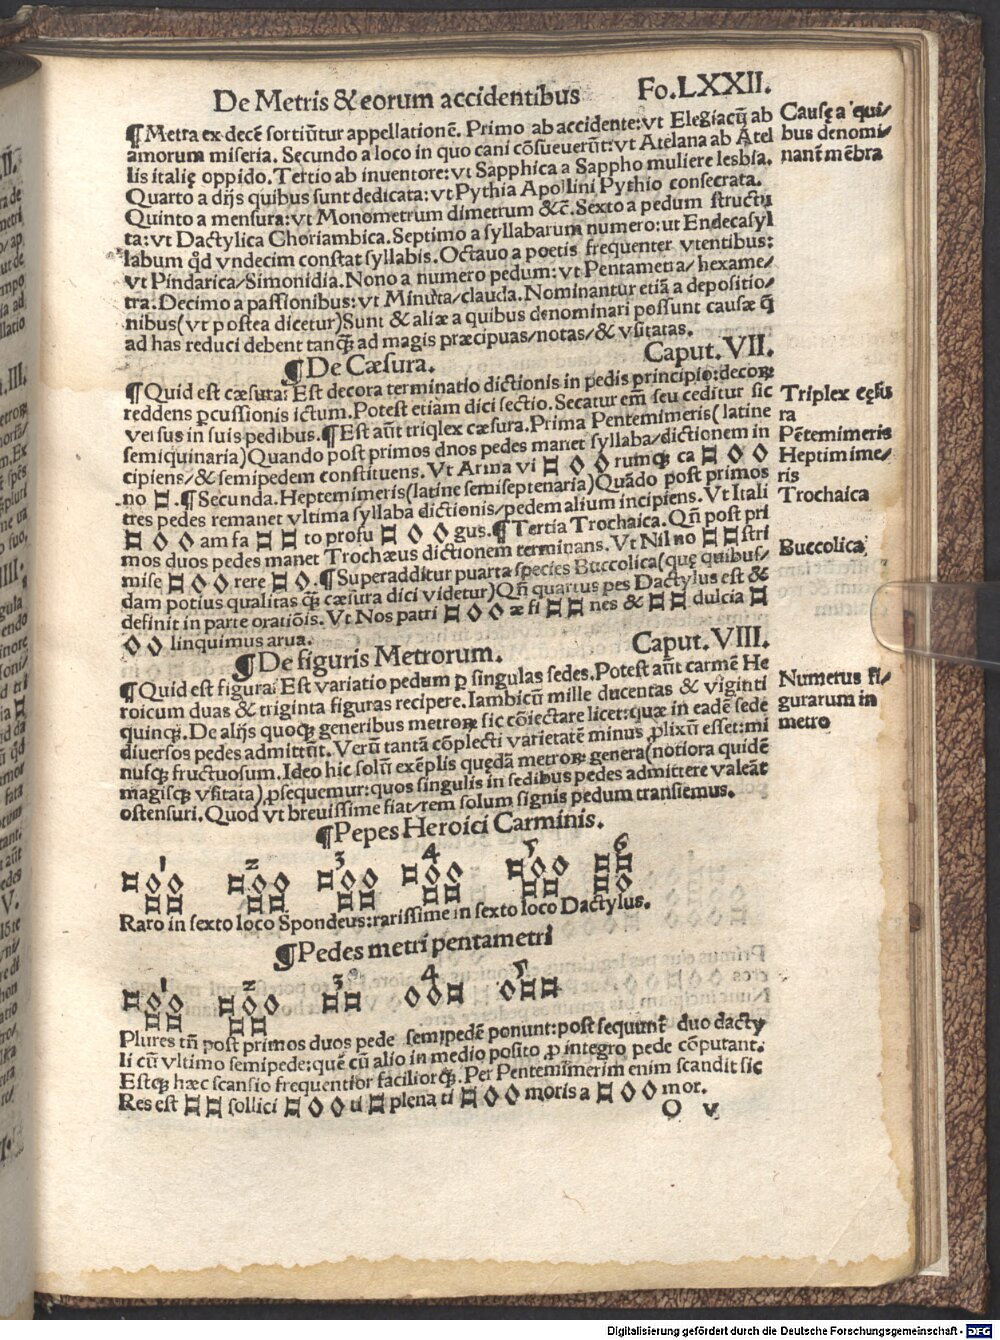 De Metris & eorum accidentibus Fo. LXXII.
¶ Metra ex decē sortiūtur appellationē. Primo ab accidente: vt Elegiacū ab
amorum miseria. Secundo a loco in quo cani cōsueuerūt: vt Atelana ab Atel
lis italię oppido. Tertio ab inuentore: vt Sapphica a Sappho muliere lesbia.
Quarto a dijs quibus sunt dedicata: vt Pythia Apollini Pythio consecrata.
Quinto a mensura: vt Monometrum dimetrum &c̄. Sexto a pedum structu
ra: vt Dactylica Choriambica. Septimo a syllabarum numero: ut Endecasyl
labum qđ vndecim constat syllabis. Octauo a poetis frequenter vtentibus:
vt Pindarica/Simonidia. Nono a numero pedum: vt Pentametra/hexame/
tra. Decimo a passionibus: vt Minuta/clauda. Nominantur etiā a depositio/
nibus (vt postea dicetur) Sunt & aliæ a quibus denominari possunt causæ q̄
ad has reduci debent tanq̄ ad magis præcipuas/notas/& vsitatas.
Causę a qui/
bus denomi/
nant̄ mēbra
¶ De Cæsura. Caput. VII.
¶ Quid est cæsura: Est decora terminatio dictionis in pedis principio: decoꝝ
reddens ꝑcussionis ictum. Potest etiam dici sectio. Secatur em̄ seu ceditur sic
versus in suis pedibus. ¶ Est aūt triplex cæsura. Prima Pentemimeris (latine
semiquinaria) Quando post primos duos pedes manet syllaba/dictionem in
cipiens/& semipedem constituens. Vt Arma vi □ ◇ ◇ rumqꝫ ca □ ◇ ◇
no □. ¶ Secunda. Heptemimeris (latine semiseptenaria) Quādo post primos
tres pedes remanet vltima syllaba dictionis/pedem alium incipiens. Vt Itali
□ ◇ ◇ am fa □ □ to profu □ ◇ ◇ gus. ¶ Tertia Trochaica. Qn̄ post pri
mos duos pedes manet Trochæus dictionem terminans. Vt Nil no □ □ stri
mise □ ◇ ◇ rere □ ◇. ¶ Superadditur quarta species Buccolica (quę quibus/
dam potius qualitas q̄ cæsura dici videtur) Qn̄ quartus pes Dactylus est &
definit in parte oratiōis. Vt Nos patri □ ◇ ◇ æ fi □ □ nes & □ □ dulcia □
◇ ◇ linquimus arua.
Triplex cęsu
ra
Pētemimeris
Heptimime/
ris
Trochaica
Buccolica
¶ De figuris Metrorum. Caput. VIII.
¶ Quid est figura: Est variatio pedum ꝑ singulas sedes. Potest aūt carmē He
roicum duas & triginta figuras recipere. Iambicū mille ducentas & viginti
quinqꝫ. De alijs quoqꝫ generibus metroꝝ sic cōiectare licet: quæ in eadē sede
diuersos pedes admittūt. Verū tantā cōplecti varietatē minus ꝓlixū esset: mi
nusqꝫ fructuosum. Ideo hic solū exēplis quędā metroꝝ genera (notiora quidē
magisqꝫ vsitata) ꝓsequemur: quos singulis in sedibus pedes admittere valeāt
ostensuri. Quod vt breuissime fiat/rem solum signis pedum transiemus.
Numerus fi/
gurarum in
metro
¶ Pepes Heroici Carminis.
1 2 3 4 5 6
□ ◇ ◇ □ ◇ ◇ □ ◇ ◇ □ ◇ ◇ □ ◇ ◇ □ □
□ □ □ □ □ □ □ □ □ □ □ ◇
Raro in sexto loco Spondeus: rarissime in sexto loco Dactylus.
¶ Pedes metri pentametri
1 2 3 4 5
□ ◇ ◇ □ ◇ ◇ □ □ ◇ ◇ □ ◇ □ □
□ □ □ □
Plures tn̄ post primos duos pede semipedē ponunt: post sequunt̄ duo dacty
li cū vltimo semipede: quē cū alio in medio posito ꝓ integro pede cōputant.
Estqꝫ hæc scansio frequentior faciliorqꝫ. Per Pentemimerim enim scandit sic
Res est □ □ sollici □ ◇ ◇ ti □ plena ti □ ◇ ◇ moris a □ ◇ ◇ mor.
O v
Digitalisierung gefördert durch die Deutsche Forschungsgemeinschaft - DFG